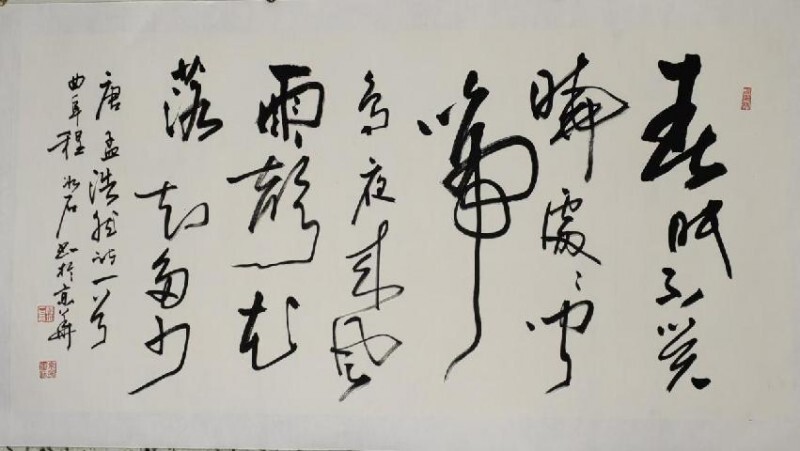 春眠不觉
晓處〻闻
啼
鸟夜来风
雨聲花
落知多少
唐孟浩然诗一首
曲阜程冰石书於京華